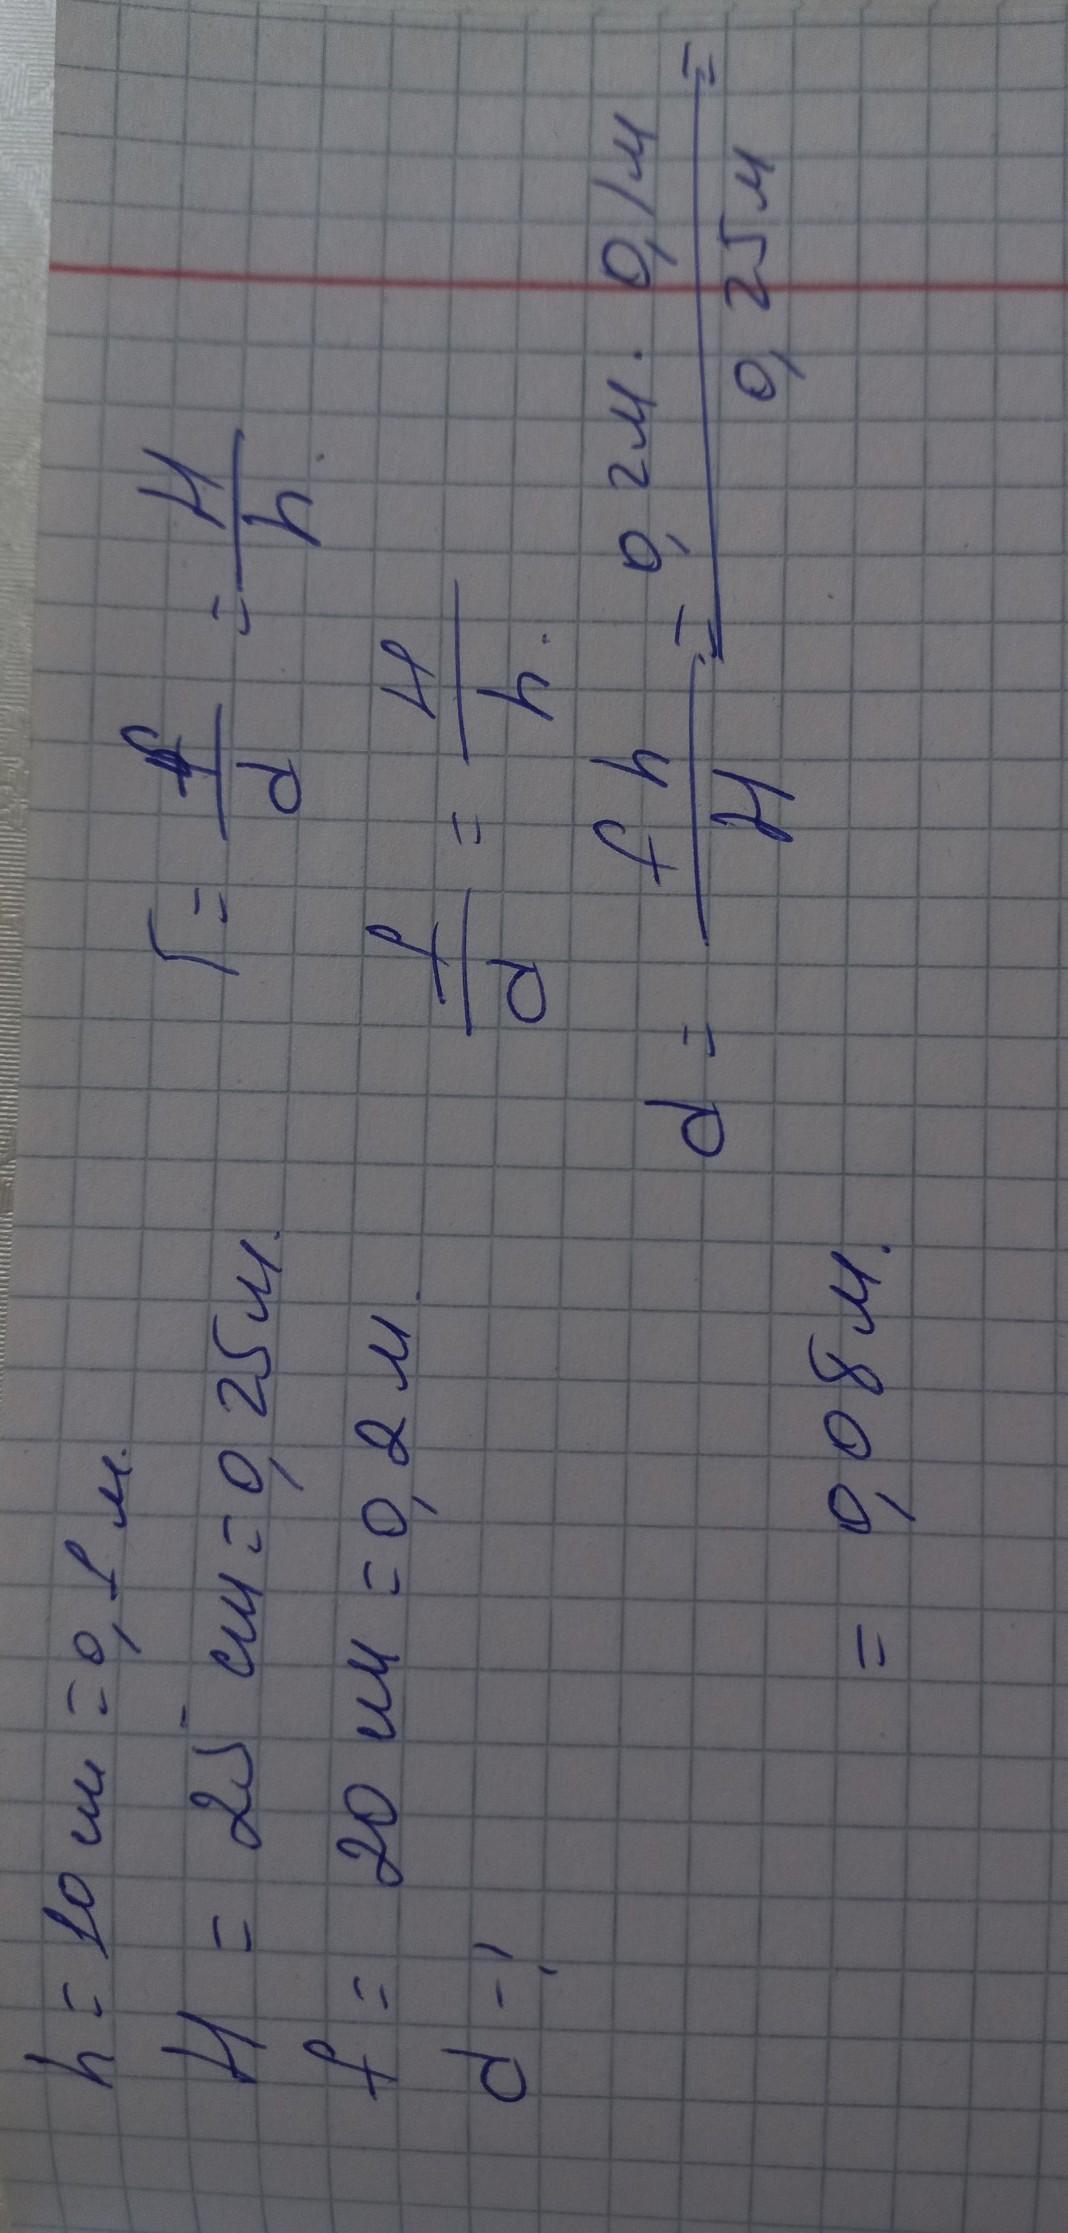 h = 10 см = 0,1 м.
H = 25 см = 0,25 м.
f = 20 см = 0,2 м.
d - ?
Г = f/d = H/h.
f/d = H/h.
d = f h/H = 0,2м · 0,1м/0,25м =
= 0,08 м.